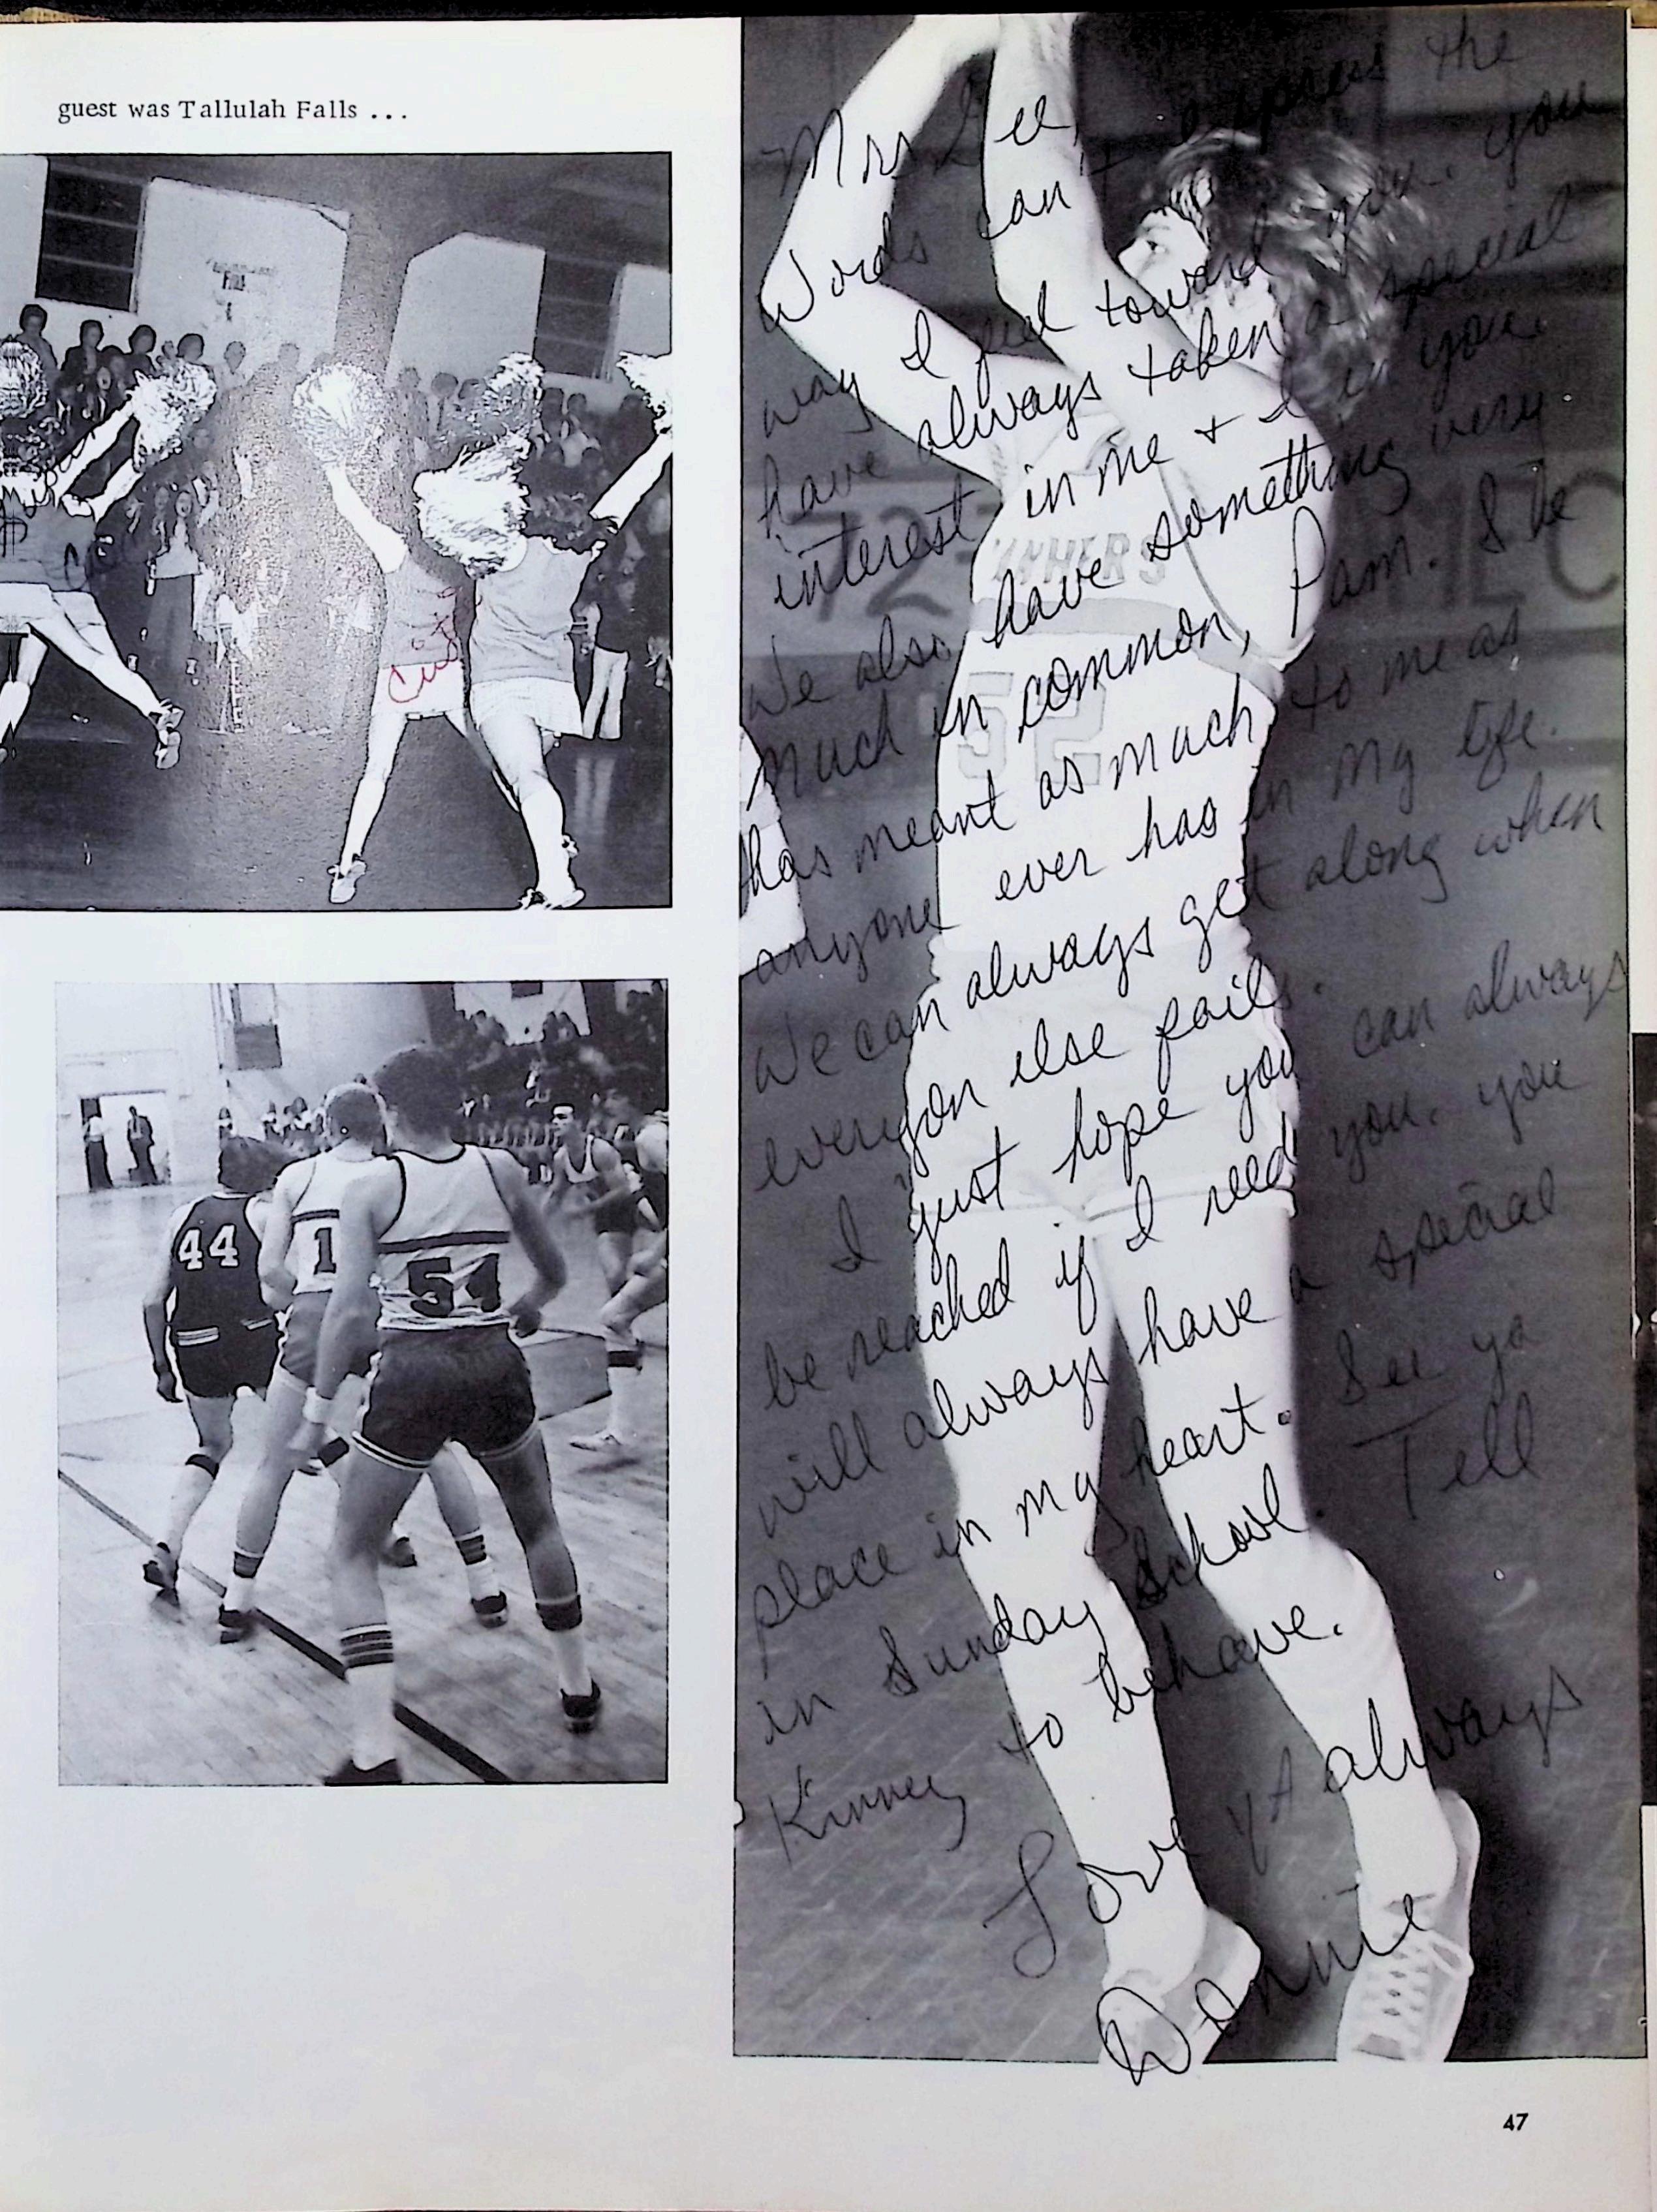 guest was Tallulah Falls ...
Mrs Lee,
Words can't express the
way I feel toward you. You
have always taken a special
interest in me & I in you.
We also have something very
much in common, Pam. She
has meant as much to me as
anyone ever has in my life.
We can always get along when
everyon else fails.
I just hope you can always
be reached if I need you. You
will always have a special
place in my heart. See ya
in Sunday School. Tell
Kinney to behave.
Love ya always
Donnie
72
52
44
1
54
47